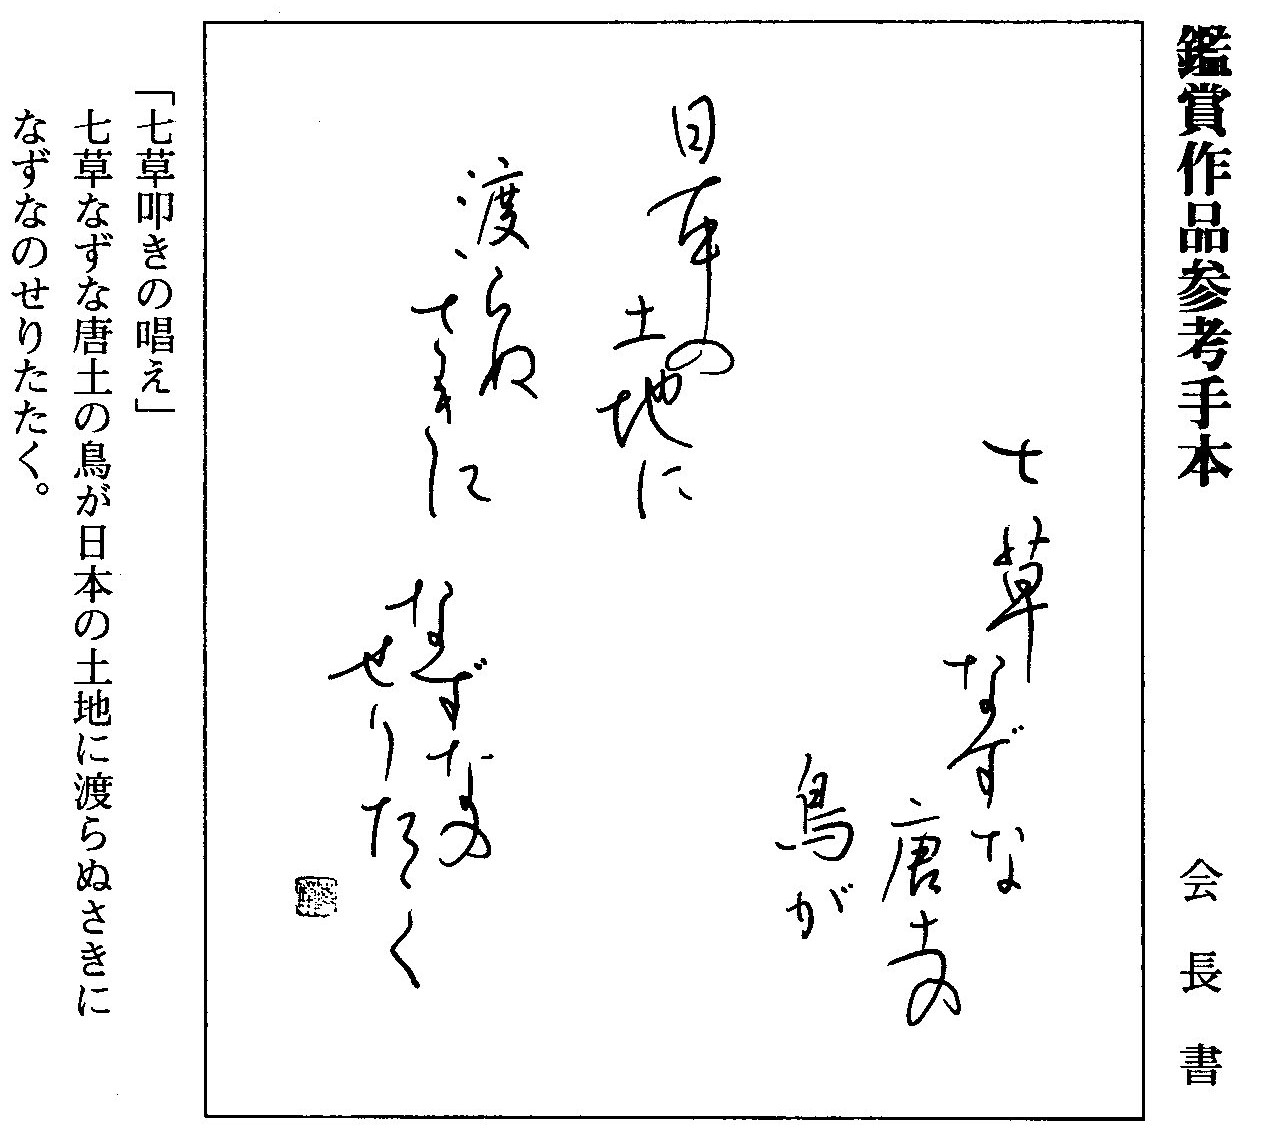 鑑賞作品参考手本
会長書
七草なずな
唐土の
鳥が
日本の
土地に
渡らぬ
さきに
なずなの
せりたたく
「七草叩きの唱え」
七草なずな唐土の鳥が日本の土地に渡らぬさきに
なずなのせりたたく。